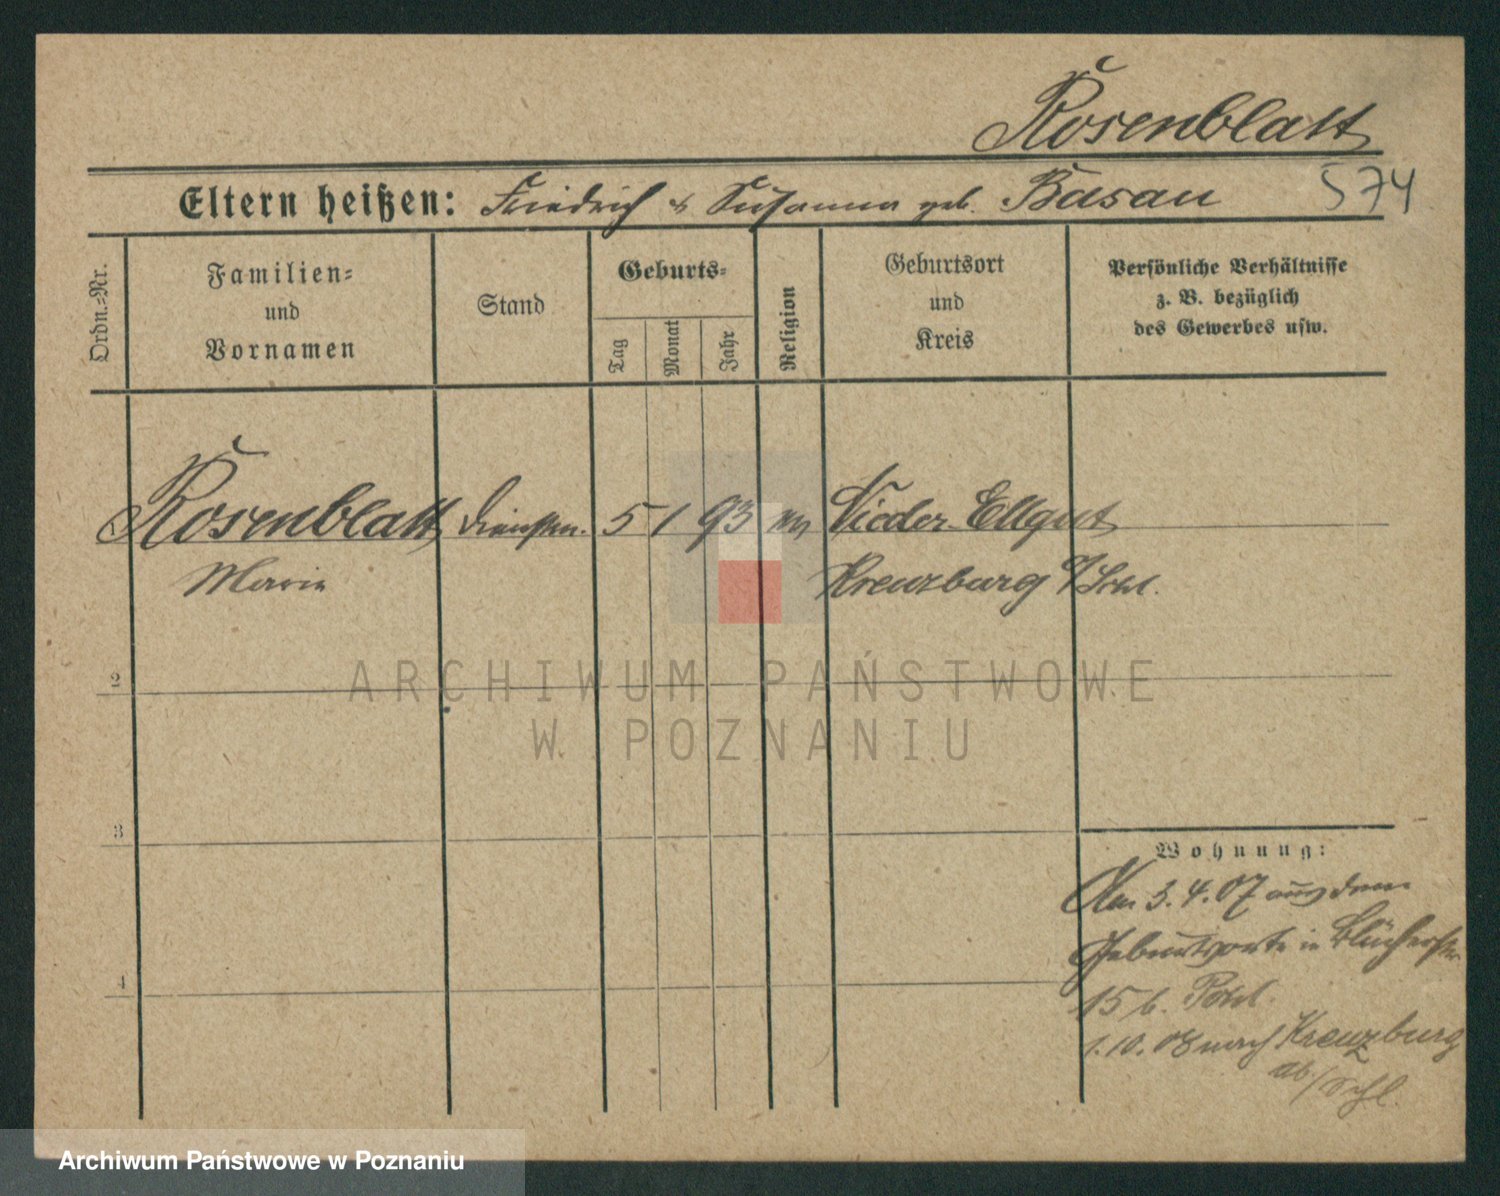 Rosenblatt
Eltern heißen: Friedrich & Susanna geb. Basan
574
Ordn.-Nr.
Familien-
und
Vornamen
Stand
Geburts-
Tag
Monat
Jahr
Religion
Geburtsort
und
Kreis
Persönliche Verhältnisse
z. B. bezüglich
des Gewerbes usw.
Rosenblatt Dienstm. 5 1 93 Nieder Ellgut
Marie Kreuzburg O/Schl.
ARCHIWUM PAŃSTWOWE
W POZNANIU
2
3
4
Wohnung:
Am 3.4.07 aus dem
Geburtsorte in Blücherstr
15 b.
1.10.08 nach Kreuzburg
ob/Schl.
Archiwum Państwowe w Poznaniu